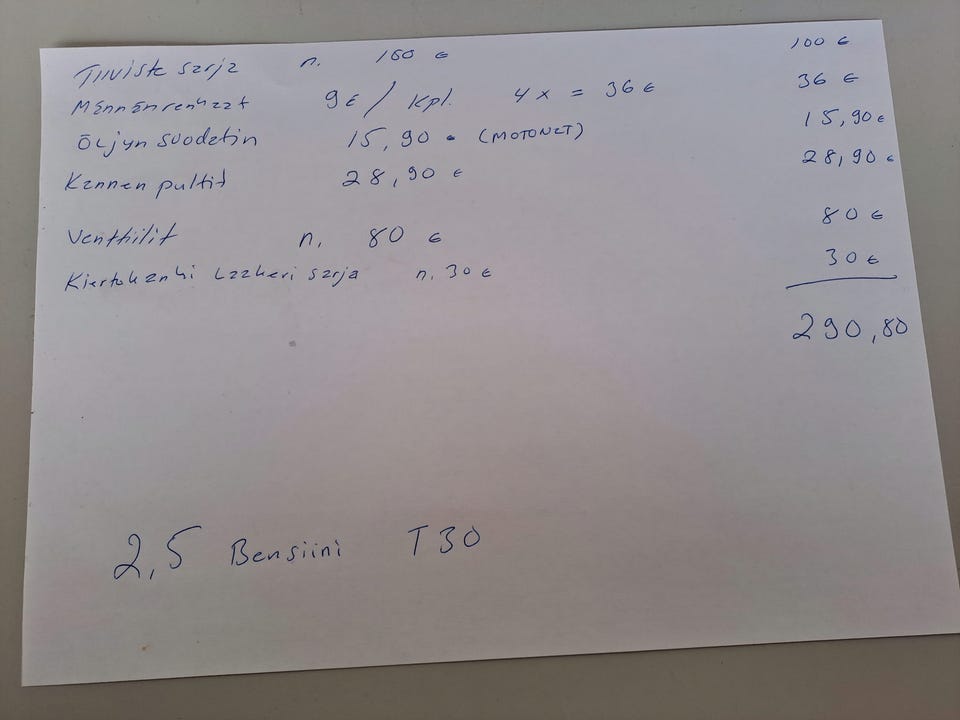 Tiiviste sarja n. 100 € 100 €
Männänrenkaat 9€ / kpl. 4 x = 36 € 36 €
Öljyn suodatin 15,90 (MOTONET) 15,90€
Kannen pultit 28,90 € 28,90 €
Venttiilit n. 80 € 80 €
Kiertokanki Laakeri sarja n. 30 € 30 €
290,80
2,5 Bensiini T30